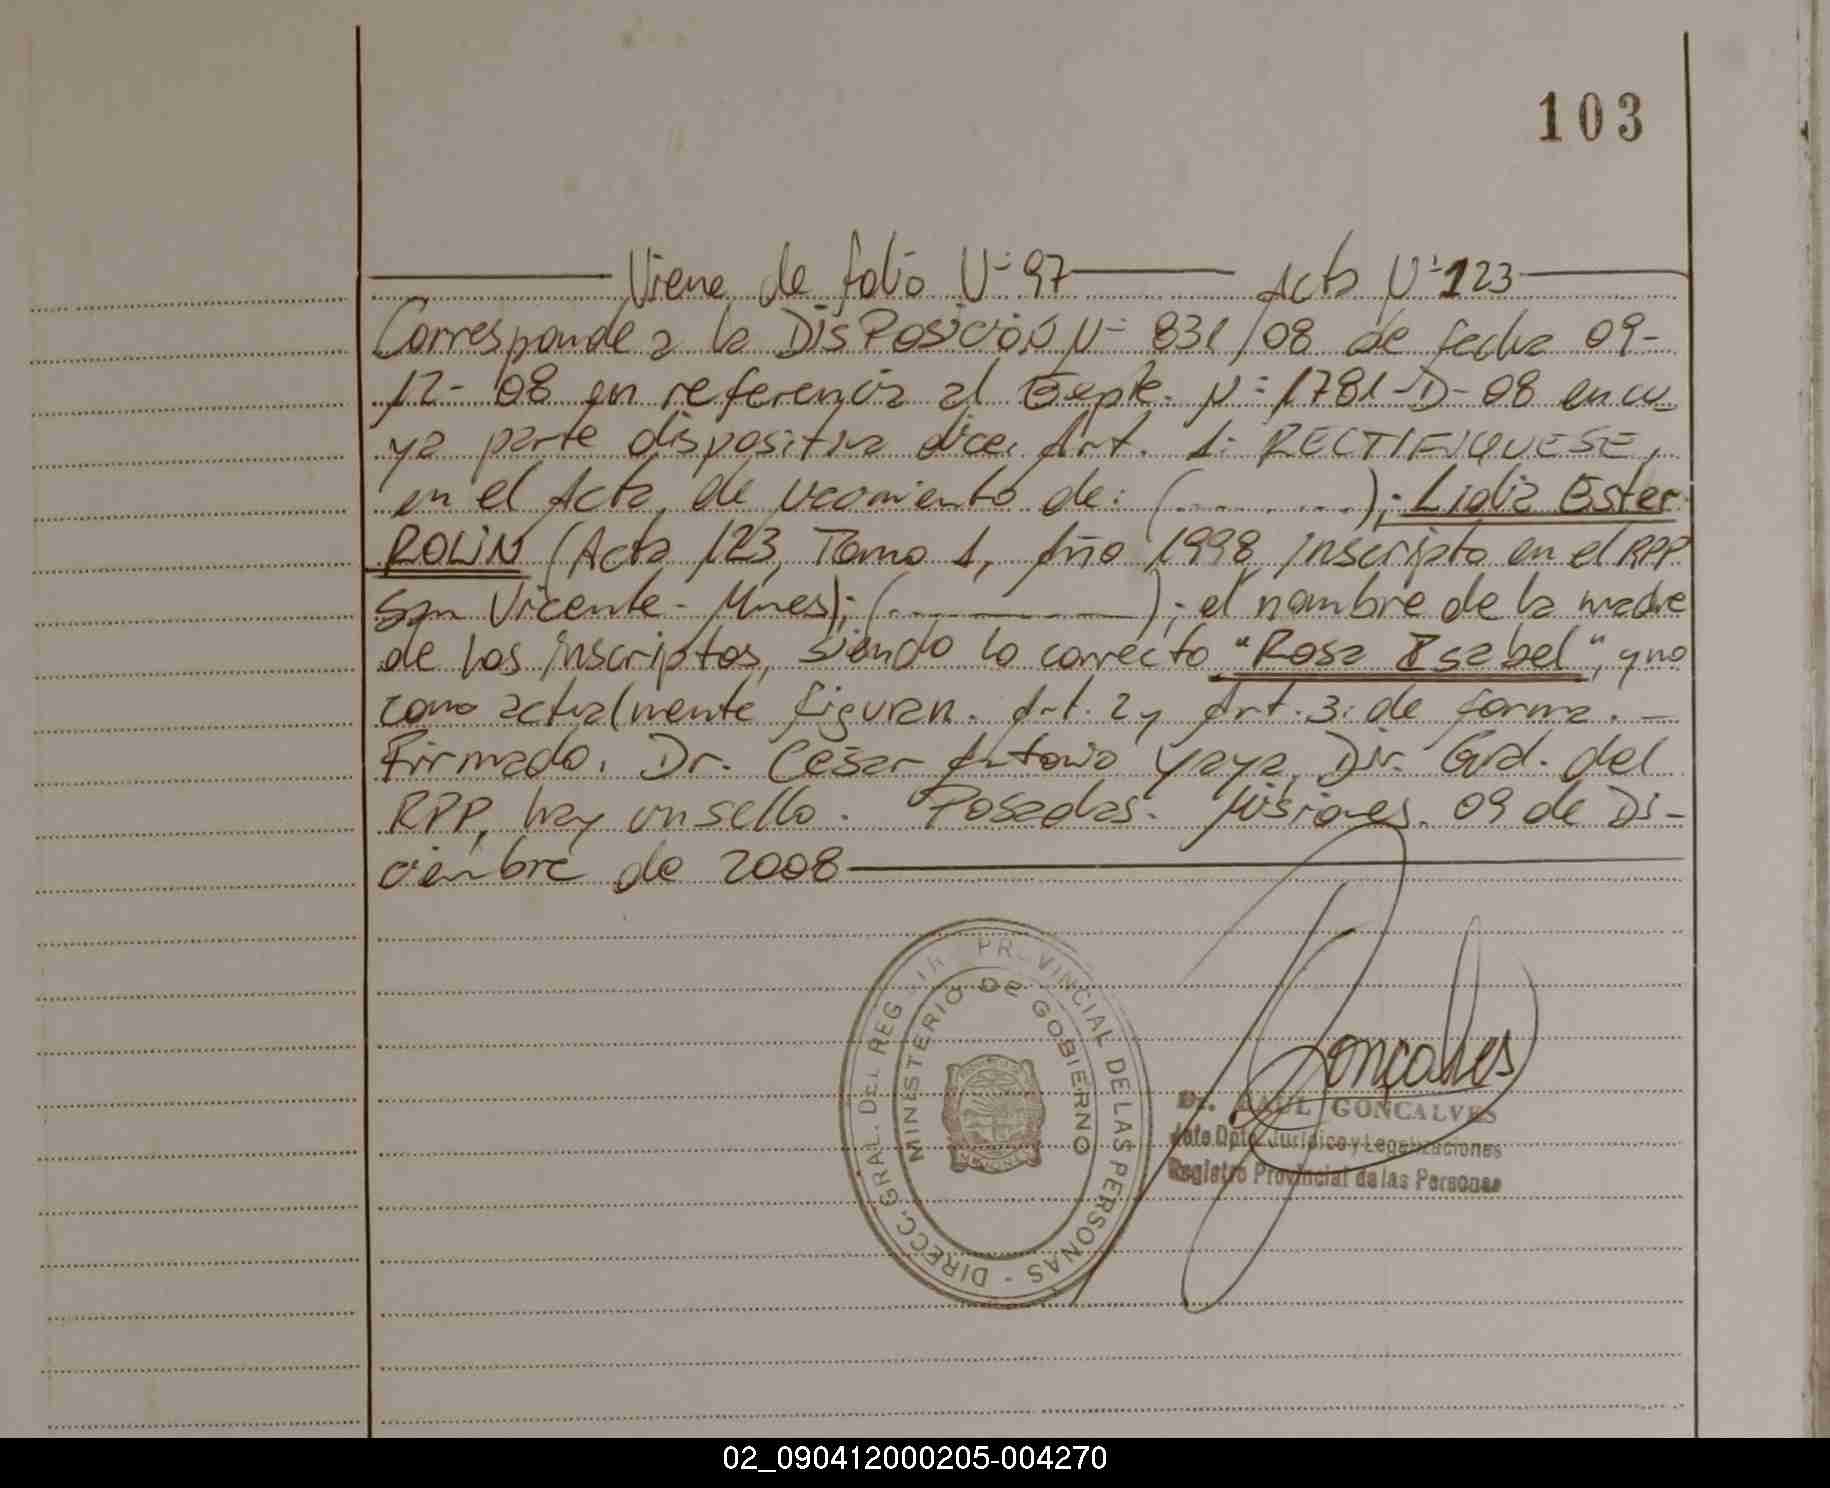 103
Viene de folio Nº 97 Acta Nº 123
Corresponde a la DISPOSICION Nº 831/08 de fecha 09-
12-08 en referencia al Expte. Nº 1781-D-08 en cu-
ya parte dispositiva dice: Art. 1: RECTIFIQUESE,
en el Acta de Nacimiento de: (.........); Lidia Ester
ROLIN (Acta 123, Tomo 1, Año 1998 inscripto en el RPP
San Vicente - Mnes); (.........); el nombre de la madre
de los inscriptos, siendo lo correcto "Rosa Isabel", y no
como actualmente figuran. Art. 2 y Art. 3: de forma. -
Firmado. Dr. César Antonio Yaya, Dir. Gral. del
RPP, hay un sello. Posadas. Misiones. 09 de Di-
ciembre de 2008
DIRECC. GRAL. DEL REG PROVINCIAL DE LAS PERSONAS -
MINISTERIO DE GOBIERNO
MISIONES
Gonçalves
Dr. RAUL GONCALVES
Jefe Dpto. Jurídico y Legalizaciones
Registro Provincial de las Personas
02_090412000205-004270